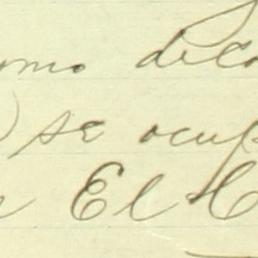 omo deco
) se ocup
El C